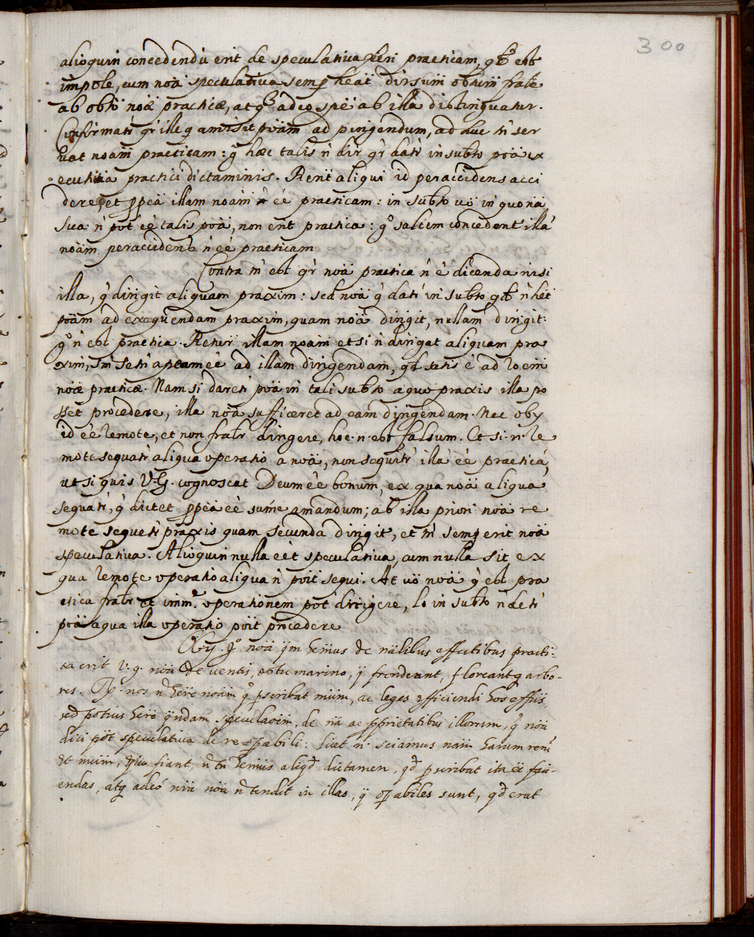 300
alioquin concedendũ erit de speculatiua fieri practicam, qd̃ est
impole, cum noã speculatiua semp heãt dirsum obtum frale
ab obto noæ practicæ, atq̃ adeo spẽ ab illa distinguatur.
Confirmatr qr ille q amisit põam ad pingendum, adhuc tñ ser
uat noam practicam: q̃ hæc talis ñ dir qr datr in subto põa ex
ecutiua practici dictaminis. Rent aliqui id per accidens acci
dere, et ppea illam noam ñ eẽ practicam: in subto uò in quo nã
sua ñ pot eẽ talis põa, non erit practica: q̃ saltim concedent illã
noãm peraccidens ñ eẽ practicam
Contra tñ est qr noã practica ñ ẽ dicenda nisi
illa, q̃ dirigit aliquam praxim: sed noã q̃ datr in subto qd̃ ñ het
põam ad exequendam praxim, quam noã dirigit, nullam dirigit:
q̃ ñ est practica. Retur illam noam etsi ñ dirigat aliquam pra
xim, tñ setr aptam eẽ ad illam dirigendam, qd̃ satis ẽ ad roem
noæ practicæ. Nam si daretr põa in tali subto a quo praxis illa po
sset procedere, illa noã sufficeret ad eam dirigendam. Nec obs
id eẽ remote, et non fratr dirigere, hoc n. est falsum. Et si n. re
mote sequatr aliqua operatio a noã, non sequitr illã eẽ practicã,
ut si quis V.G. cognoscat Deum eẽ bonum, ex qua noã aliqua
sequatr, q̃ dictet ppea eẽ sumẽ amandum; ab illa priori noã re
mote sequetr praxis quam secunda dirigit, et tñ semp erit noã
speculatiua. Alioquin nulla eẽt speculatiua, cum nulla sit ex
qua remote operatio aliqua ñ poit sequi. At uò noã q̃ est pra
ctica fratr et imme operationem pot dirigere, lo in subto ñ detr
põa a qua illa operatio poit procedere
Obij. q̃ noã qm hemus de nãlibus effectibus practi-
ca erit V.g. noã de uentis, æstu marino, q̃ frondeant, floreantq arbo-
res. Rr. nos ñ here noam q̃ pscribat mum, ac leges efficiendi hos effus
sed potius here qndam speculaoem, de nã ac pprietatibus illorum, q̃ non
dici pot speculatiua de re opabili: licet n. sciamus nam harum rerũ
et mum, quo fiant, ñ tñ hemus aliqd̃ dictamen, qd̃ pscribat ita eẽ faci-
endas, atq̃ adeò nrã noã ñ tendit in illas, q̃ opabiles sunt, qd̃ erat